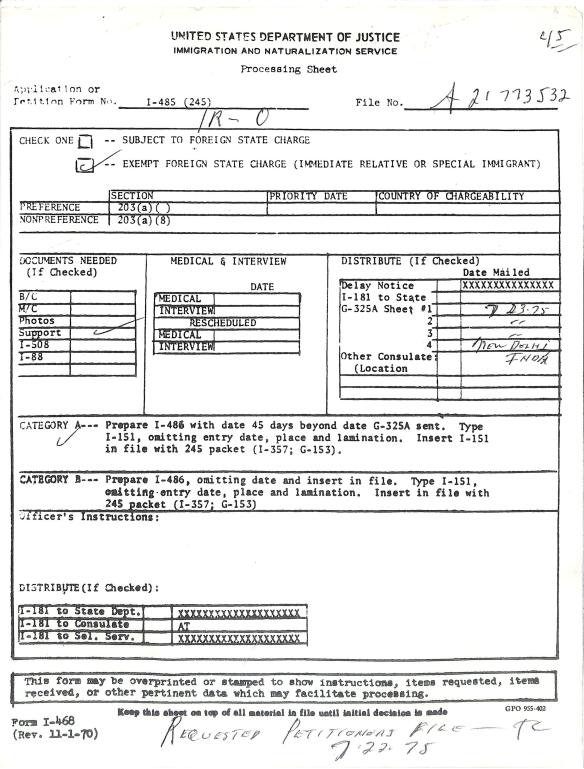 45
UNITED STATES DEPARTMENT OF JUSTICE
IMMIGRATION AND NATURALIZATION SERVICE
Processing Sheet
Application or
Petition Form No. I-485 (245)
File No. A 21 773 532
IR-0
CHECK ONE -- SUBJECT TO FOREIGN STATE CHARGE
-- EXEMPT FOREIGN STATE CHARGE (IMMEDIATE RELATIVE OR SPECIAL IMMIGRANT)
SECTION PRIORITY DATE COUNTRY OF CHARGEABILITY
PREFERENCE 203(a)( )
NONPREFERENCE 203(a)(8)
DOCUMENTS NEEDED
(If Checked)
B/C
M/C
Photos
Support
I-508
I-88
MEDICAL & INTERVIEW
DATE
MEDICAL
INTERVIEW
RESCHEDULED
MEDICAL
INTERVIEW
DISTRIBUTE (If Checked)
Date Mailed
Delay Notice XXXXXXXXXXXXXXX
I-181 to State
G-325A Sheet #1 7 23.75
2 "
3 "
4 New Delhi
Other Consulate: INDIA
(Location
CATEGORY A--- Prepare I-486 with date 45 days beyond date G-325A sent. Type
I-151, omitting entry date, place and lamination. Insert I-151
in file with 245 packet (I-357; G-153).
CATEGORY B--- Prepare I-486, omitting date and insert in file. Type I-151,
omitting entry date, place and lamination. Insert in file with
245 packet (I-357; G-153)
Officer's Instructions:
DISTRIBUTE(If Checked):
I-181 to State Dept. XXXXXXXXXXXXXXXXXXXX
I-181 to Consulate AT
I-181 to Sel. Serv. XXXXXXXXXXXXXXXXXXXX
This form may be overprinted or stamped to show instructions, items requested, items
received, or other pertinent data which may facilitate processing.
Keep this sheet on top of all material in file until initial decision is made
GPO 955-403
Form I-468
(Rev. 11-1-70)
REQUESTED PETITIONERS FILE —
7.22.75